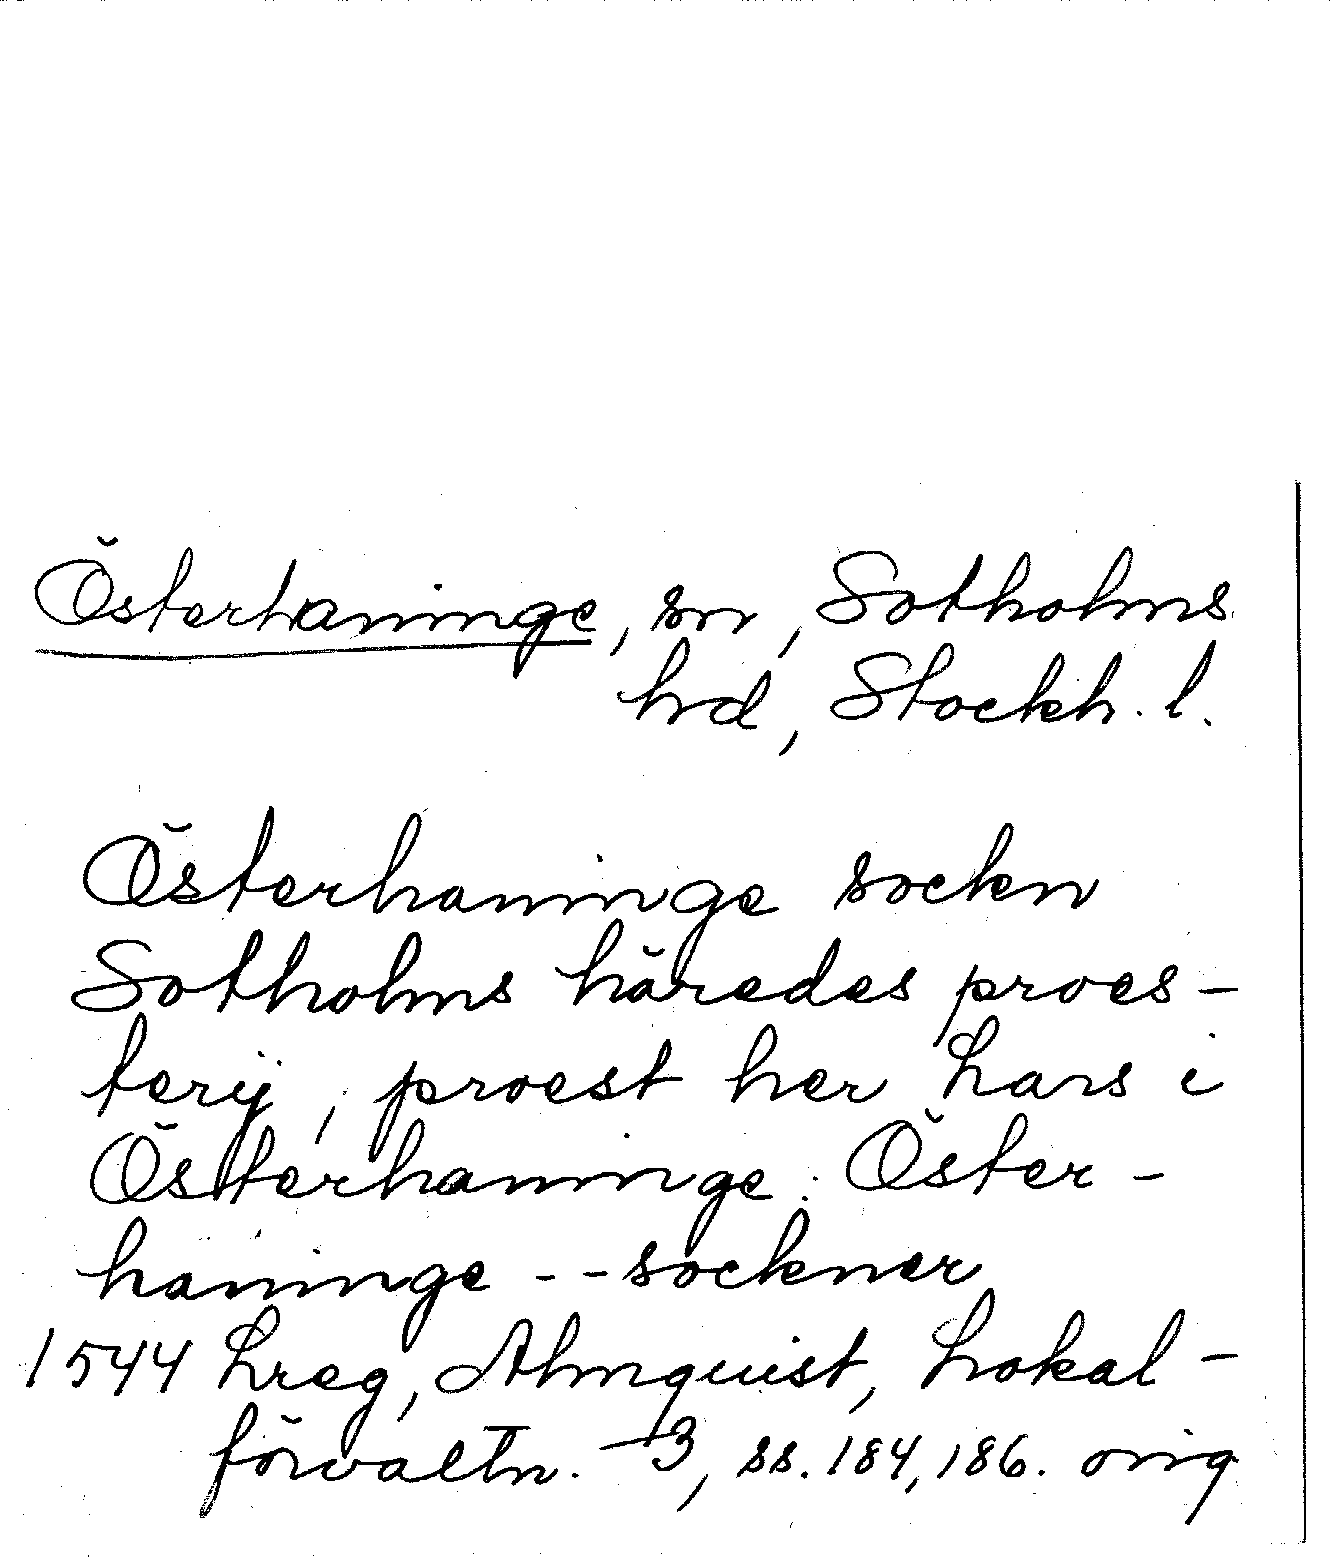 Österhaninge, sn, Sotholms
hd, Stockh. l.
Österhaninge sockn
Sotholms häredes proes-
terij, proest her Lars i
Österhaninge. Öster-
haninge - - sockner
1544 Lreg, Almquist, Lokal-
förvaltn. 3, ss. 184, 186. orig